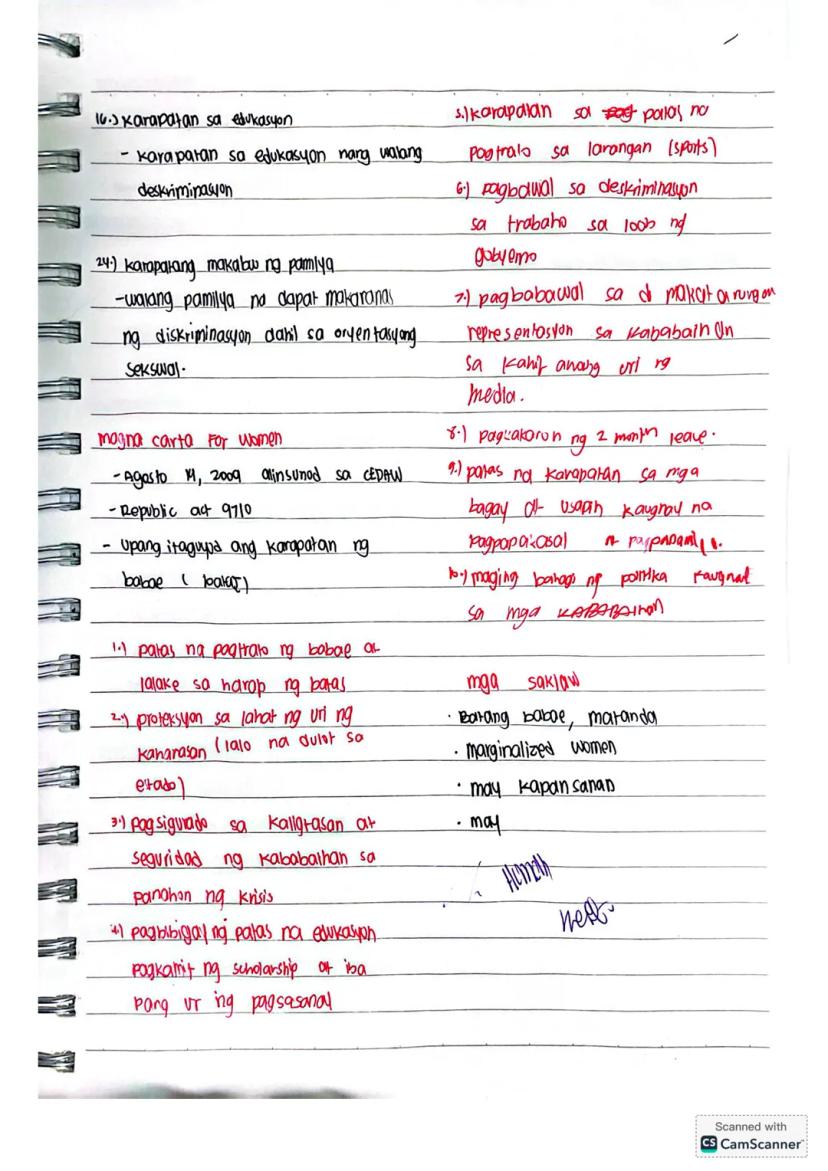 16.) Karapatan sa edukasyon
- karapatan sa edukasyon nang walang
deskriminasyon
24.) karapatang makabuo ng pamilya
- walang pamilya na dapat makaranas
ng diskriminasyon dahil sa oryentasyong
sekswal.
magna carta For women
- Agosto 14, 2009 alinsunod sa CEDAW
- Republic act 9710
- Upang itaguyod ang karapatan ng
babae (batas)
1.) patas na pagtrato ng babae at
lalake sa harap ng batas
2.) proteksyon sa lahat ng uri ng
karahasan (lalo na dulot sa
estado)
3.) pagsigurado sa kaligtasan at
seguridad ng kababaihan sa
panahon ng krisis
4.) pagbibigay ng patas na edukasyon
pagkamit ng scholarship at iba
pang uri ng pagsasanay
5.) karapatan sa patas na
pagtrato sa larangan (sports)
6.) pagbawal sa deskriminasyon
sa trabaho sa loob ng
gobyerno
7.) pagbabawal sa di makatarungan
representasyon sa kababaihan
sa kahit anong uri ng
media.
8.) pagkakaron ng 2 month leave.
9.) patas na karapatan sa mga
bagay at usapin kaugnay na
pagpapakasal
10.) maging bahagi ng politika
sa mga KABABAIHAN
mga saklaw
• Batang babae, matanda
• marginalized women
• may kapansanan
• may
Scanned with
CS CamScanner